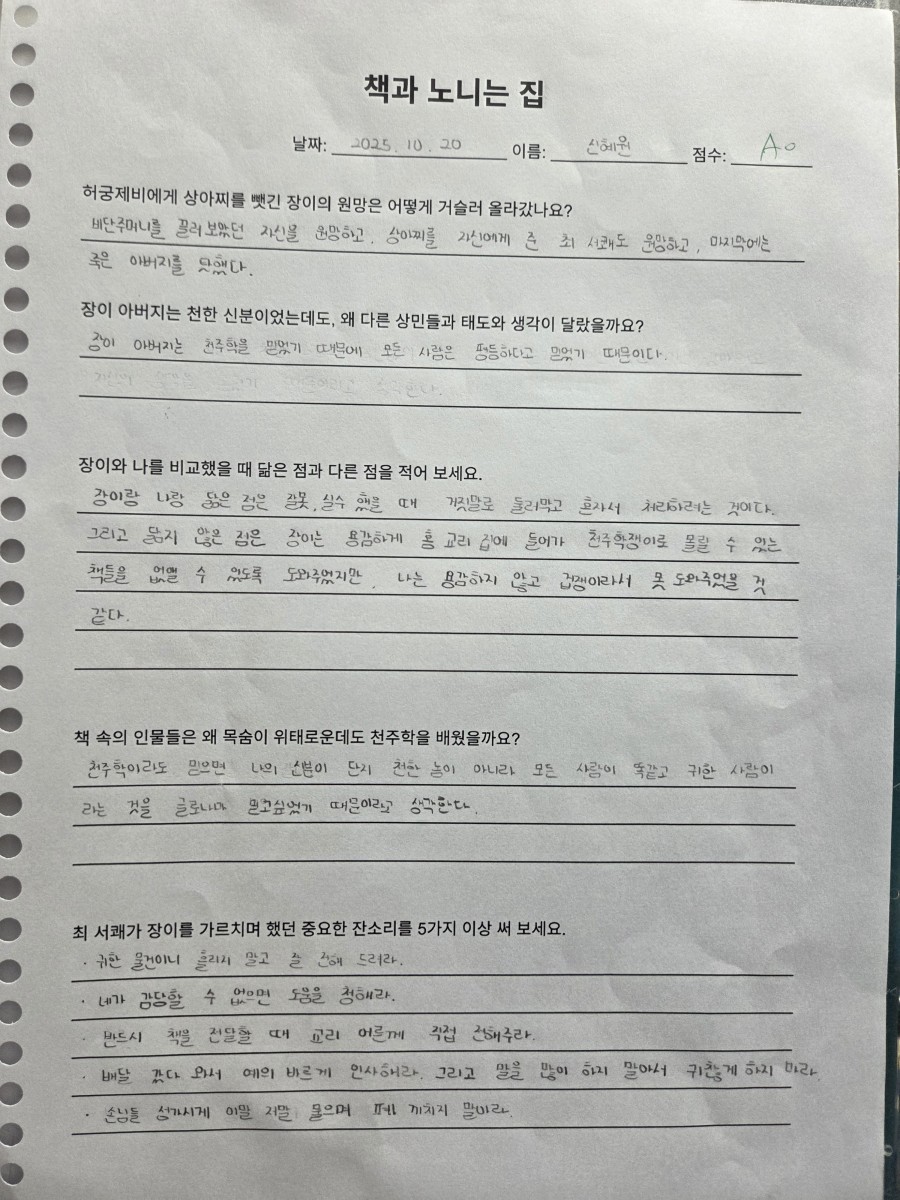 책과 노니는 집
날짜: 2025. 10. 20 이름: 신혜원 점수: A0
허궁제비에게 상아찌를 뺏긴 장이의 원망은 어떻게 거슬러 올라갔나요?
비단주머니를 끌러 보았던 자신을 원망하고, 상아찌를 자신에게 준 최 서쾌도 원망하고, 마지막에는
죽은 아버지를 탓했다.
장이 아버지는 천한 신분이었는데도, 왜 다른 상민들과 태도와 생각이 달랐을까요?
장이 아버지는 천주학을 믿었기 때문에 모든 사람은 평등하다고 믿었기 때문이다.
장이와 나를 비교했을 때 닮은 점과 다른 점을 적어 보세요.
장이랑 나랑 닮은 점은 잘못, 실수 했을 때 거짓말로 둘러막고 혼자서 처리하려는 것이다.
그리고 닮지 않은 점은 장이는 용감하게 홍 교리 집에 들어가 천주학쟁이로 몰릴 수 있는
책들을 없앨 수 있도록 도와주었지만, 나는 용감하지 않고 겁쟁이라서 못 도와주었을 것
같다.
책 속의 인물들은 왜 목숨이 위태로운데도 천주학을 배웠을까요?
천주학이라도 믿으면 나의 신분이 단지 천한 놈이 아니라 모든 사람이 똑같고 귀한 사람이
라는 것을 글로나마 믿고싶었기 때문이라고 생각한다.
최 서쾌가 장이를 가르치며 했던 중요한 잔소리를 5가지 이상 써 보세요.
· 귀한 물건이니 흘리지 말고 잘 전해 드려라.
· 네가 감당할 수 없으면 도움을 청해라.
· 반드시 책을 전달할 때 교리 어른께 직접 전해주라.
· 배달 갔다 와서 예의 바르게 인사해라. 그리고 말을 많이 하지 말아서 귀찮게 하지 마라.
· 손님들 성가시게 이말 저말 물으며 폐 끼치지 말아라.